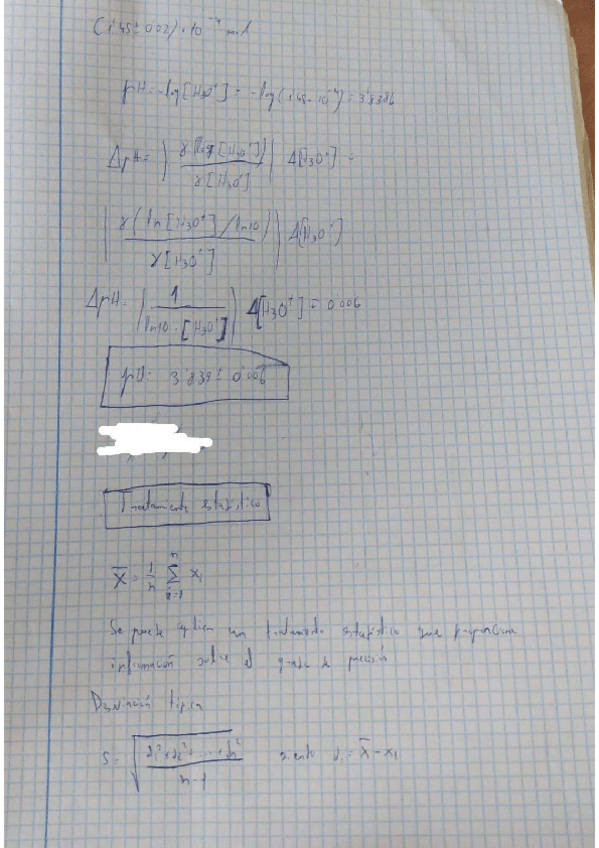 (1'45 ± 0'02) · 10⁻⁴ mol
pH = -log [H₃O⁺] = -log (1'45 · 10⁻⁴) = 3'8386
ΔpH = | γ(log [H₃O⁺]) / γ[H₃O⁺] | Δ[H₃O⁺] =
| γ(ln [H₃O⁺] / ln10) / γ[H₃O⁺] | Δ[H₃O⁺]
ΔpH = | 1 / ln10 · [H₃O⁺] | Δ[H₃O⁺] = 0'006
pH = 3'839 ± 0'006
Tratamiento estadístico
x̄ = 1/n Σ xᵢ
Se puede aplicar un tratamiento estadístico que proporciona
información sobre el grado de precisión
Desviación típica
S = √(d₁² + d₂² + ... + dₙ² / n-1) siendo dᵢ = x̄ - xᵢ